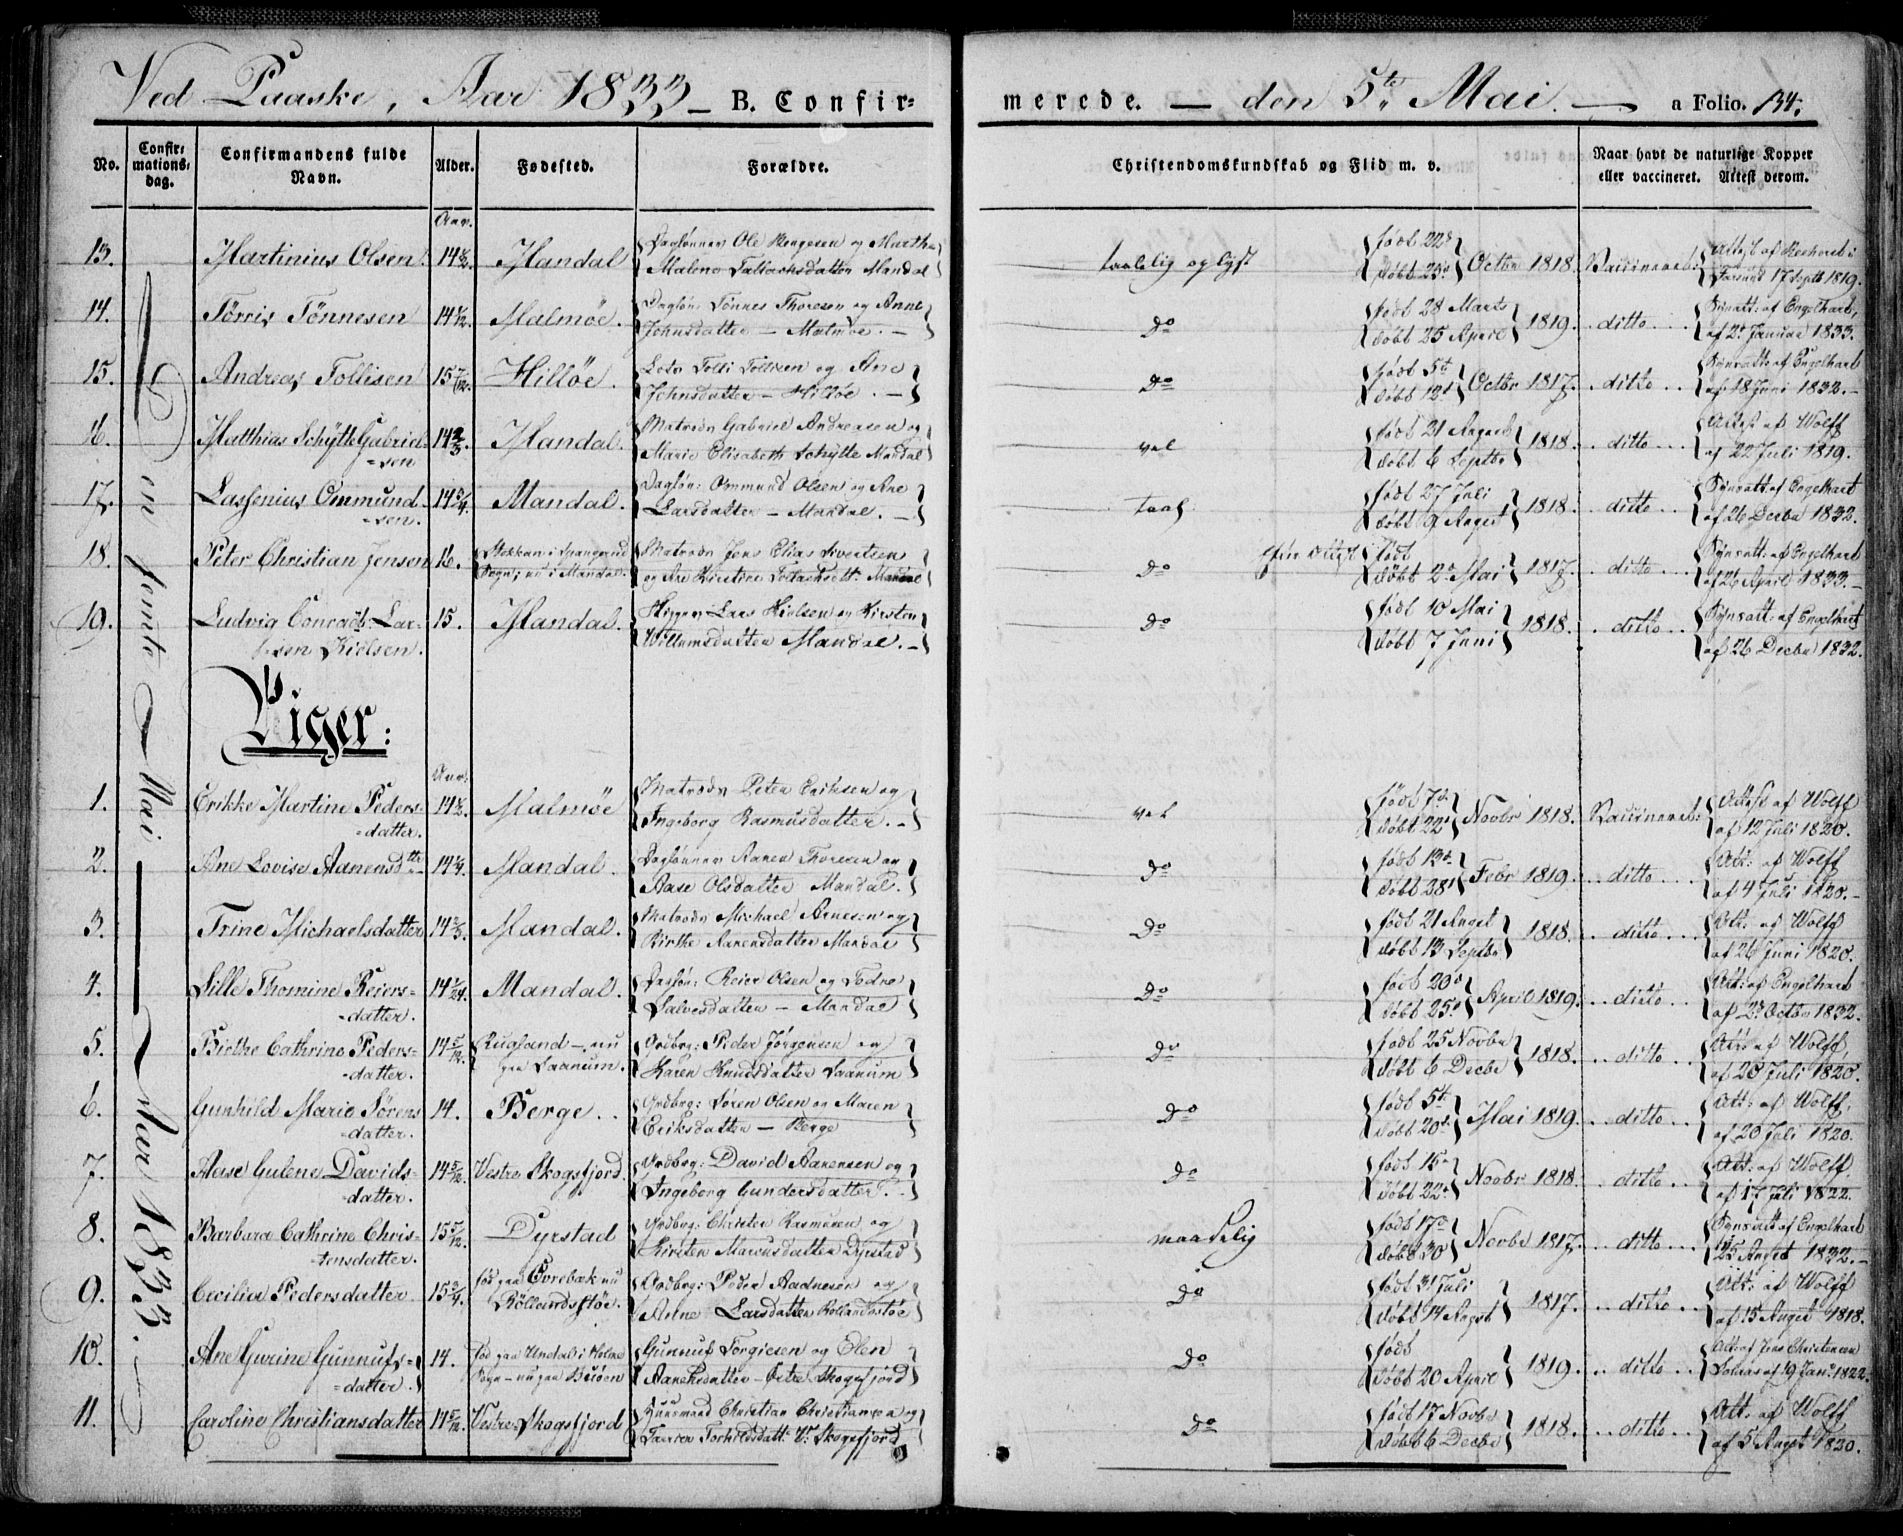 Ved Paaske, Aar 1833 — B. Confirmerede. — den 5te Mai. — a Folio. 134.
No. Confirmationsdag. Confirmandens fulde Navn. Alder. Fødested. Forældre. Christendomskundskab og Flid m. v. Naar havt de naturlige Kopper eller vaccineret. Attest derom.
Den femte Mai — Aar 1833.
Aar.
13. Martinius Olsen. 14 Mandal Daglønner Ole Bengesen og Marthe
Malene Tallachsdatter Mandal
taalelig oplyst født 22d døbt 25d Octbr 1818. Vaccineret: Attest af
Farsund 17 Septb 1819.
14. Tørris Tönnesen 14 Malmöe. Dagløn: Tönnes Thoresen og Anne
Johnsdatter — Malmöe. —
Do født 28 Marts døbt 25 April 1819. ditto Synsatt: af Engelhart,
af 2d Januar 1833.
15. Andreas Tollisen 15 7/12 Hillöe. Lods Tolli Tollisen og Ane
Johnsdatter — Hillöe. —
Do født 5te døbt 12t Octbr 1817. ditto Synsatt: af Engelhart
af 18 Juni 1832. —
16. Matthias Schÿtte Gabriel=
=sen 14 2/3. Mandal. Matrods Gabriel Andreasen og
Marie Elisabeth Schÿtte Mandal
vel født 21 August døbt 6 Septbr 1818. ditto Attest af Wolff
af 22 Juli 1819.
17. Lassenius Ommund=
=sen. 14 3/4. Mandal. Dagløn: Ommund Olsen og Ane
Larsdatter — Mandal. —
taal født 27 Juli døbt 9 August 1818. ditto Synsatt: af Engelhart
af 26 Decbr 1832.
18. Peter Christian Jensen 16. Stokkan i Spangereid
Sogn; nu i Mandal. Matrods Jens Elias Sivertsen
og Ane Kirstine Mandal
Do født døbt 2d Mai 1817. ditto Synsatt: af Engelhart
af 26 April 1833. —
19. Ludvig Conradt Lar=
=sen Kielsen. 15. Mandal. Skipper Lars Kielsen og Kirsten
Willumsdatter Mandal. —
Do født 10 Mai døbt 7 Juni 1818. ditto Synsatt: af Engelhart
af 26 Decbr 1832.
Piger:
Aar.
1. Erikke Martine Peders=
=datter. 14 1/2. Malmöe Matrods Peter Eriksen og
Ingeborg Rasmusdatter. —
vel født 7de døbt 22d Novbr 1818. Vaccineret: Attest af Wolff
af 12 Juli 1820.
2. Ane Lovise Aanensdtte 14 1/4. Mandal. Daglønner Aanen Thoresen og
Aase Olsdatter Mandal.
Do født 13de døbt 28d Febr 1819. ditto Att: af Wolff
af 4 Juli 1820. —
3. Trine Michaelsdatter 14 2/3. Mandal. Matrods Michael Arnesen og
Birthe Aanensdatter Mandal
Do født 21 August døbt 13 Septbr 1818. ditto Att: af Wolff
af 26 Juni 1820.
4. Sille Thomine Reiers=
=datter. 14 1/24. Mandal. Dagløn: Reier Olsen og Todne
Salvesdatter — Mandal
Do født 20d døbt 25d April 1819. ditto Att: af Engelhart
af 2d Octbr 1832.
5. Birthe Cathrine Peders=
=datter. 14 5/12. Rugland — nu
paa Saanum. Grdbrg: Peder Jørgensen og
Karen Knudsdatter Saanum
Do født 25 Novbr døbt 6 Decbr 1818. ditto Att: af Wolff,
af 20 Juli 1820.
6. Gunhild Marie Sørens
=datter. 14. Berge. Grdbrg: Søren Olsen og Maren
Eriksdatter — Berge
Do født 5te døbt 20d Mai 1819. ditto Att: af Wolff,
af 20 Juli 1820.
7. Aase Gulene Davids=
=datter. 14 5/12. Vestre Skogsfjord. Grdbrg: David Aanensen og
Ingeborg Gundersdatter. —
Do født 15d døbt 22d Novbr 1818. ditto Att: af Wolff
af 17 Juli 1822.
8. Barbara Cathrine Chris=
=tensdatter. 15 5/12. Dyrstad Grdbrg: Christen Rasmusen og
Kirsten Marcusdatter Dyrstad
maadelig født 17d døbt 30 Novbr 1817. ditto Synsatt: af Engelhart
25 August 1832. —
9. Cecilia Pedersdatter 15 3/4. fød paa Øvrebæk nu
Röllandsstöe. Grdbrg: Peder Aadnesen og
Anne Larsdatter Röllandsstöe
Do født 31 Juli døbt 14 August 1817. ditto Att: af Wolff
af 15 August 1818.
10. Ane Gurine Gunnufs=
=datter. 14. fød paa Undal i Holme
Sogn — nu paa Gunnuf Torgiesen og Elen
Aanensdatter — Østre Skogsfjord
Do født døbt 20 April 1819. ditto Att: af Jens Christensen
af 19 Janr. 1822.
11. Caroline Christiansdatter 14 5/12. Vestre Skogsfjord Huusmand Christian Christiansen og
Torkildsdatt: V: Skogsfjord
Do født 17 Novbr døbt 6 Decbr 1818. ditto Att: af Wolff
af 5 August 1820.